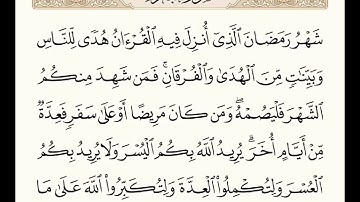 شَهْرُ رَمَضَانَ ٱلَّذِىٓ أُنزِلَ فِيهِ ٱلْقُرْءَانُ هُدًى لِّلنَّاسِ
وَبَيِّنَـٰتٍ مِّنَ ٱلْهُدَىٰ وَٱلْفُرْقَانِ ۚ فَمَن شَهِدَ مِنكُمُ
ٱلشَّهْرَ فَلْيَصُمْهُ ۖ وَمَن كَانَ مَرِيضًا أَوْ عَلَىٰ سَفَرٍ فَعِدَّةٌ
مِّنْ أَيَّامٍ أُخَرَ ۗ يُرِيدُ ٱللَّهُ بِكُمُ ٱلْيُسْرَ وَلَا يُرِيدُ بِكُمُ
ٱلْعُسْرَ وَلِتُكْمِلُوا۟ ٱلْعِدَّةَ وَلِتُكَبِّرُوا۟ ٱللَّهَ عَلَىٰ مَا